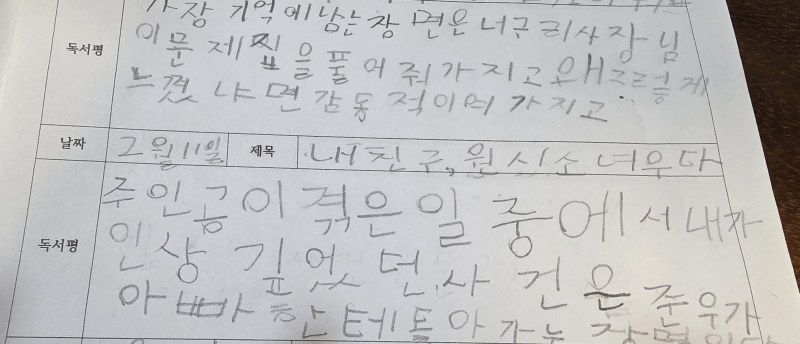 가장 기억에남는장 면은 너구리사장님
독서평
이 문제집을풀어 줘가지고 왜그르흔게
느꼈냐면 감동적이여가지고..
날짜 2월11일 제목 내친구, 원시소녀우다
주인공이 겪은 일 중에서 내가
독서평
인상 깊었던 사건은 준우가
아빠한테 돌아가는 장면